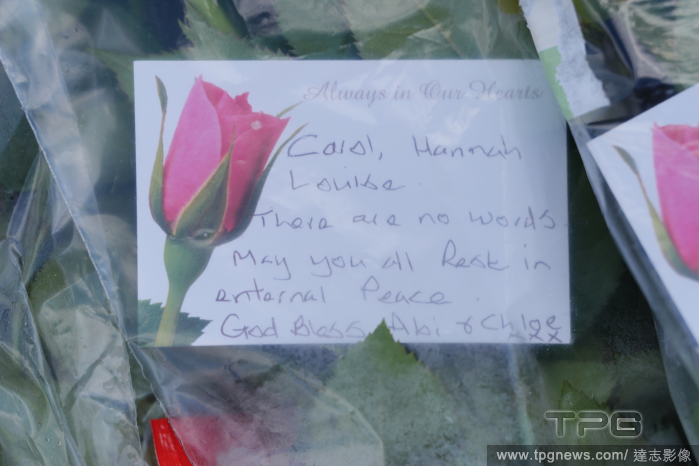 Always in Our Hearts
Carol, Hannah
Louise.
There are no words.
May you all Rest in
enternal Peace.
God Bless Abi & Chloe
xxx
TPG
www.tpgnews.com/ 達志影像